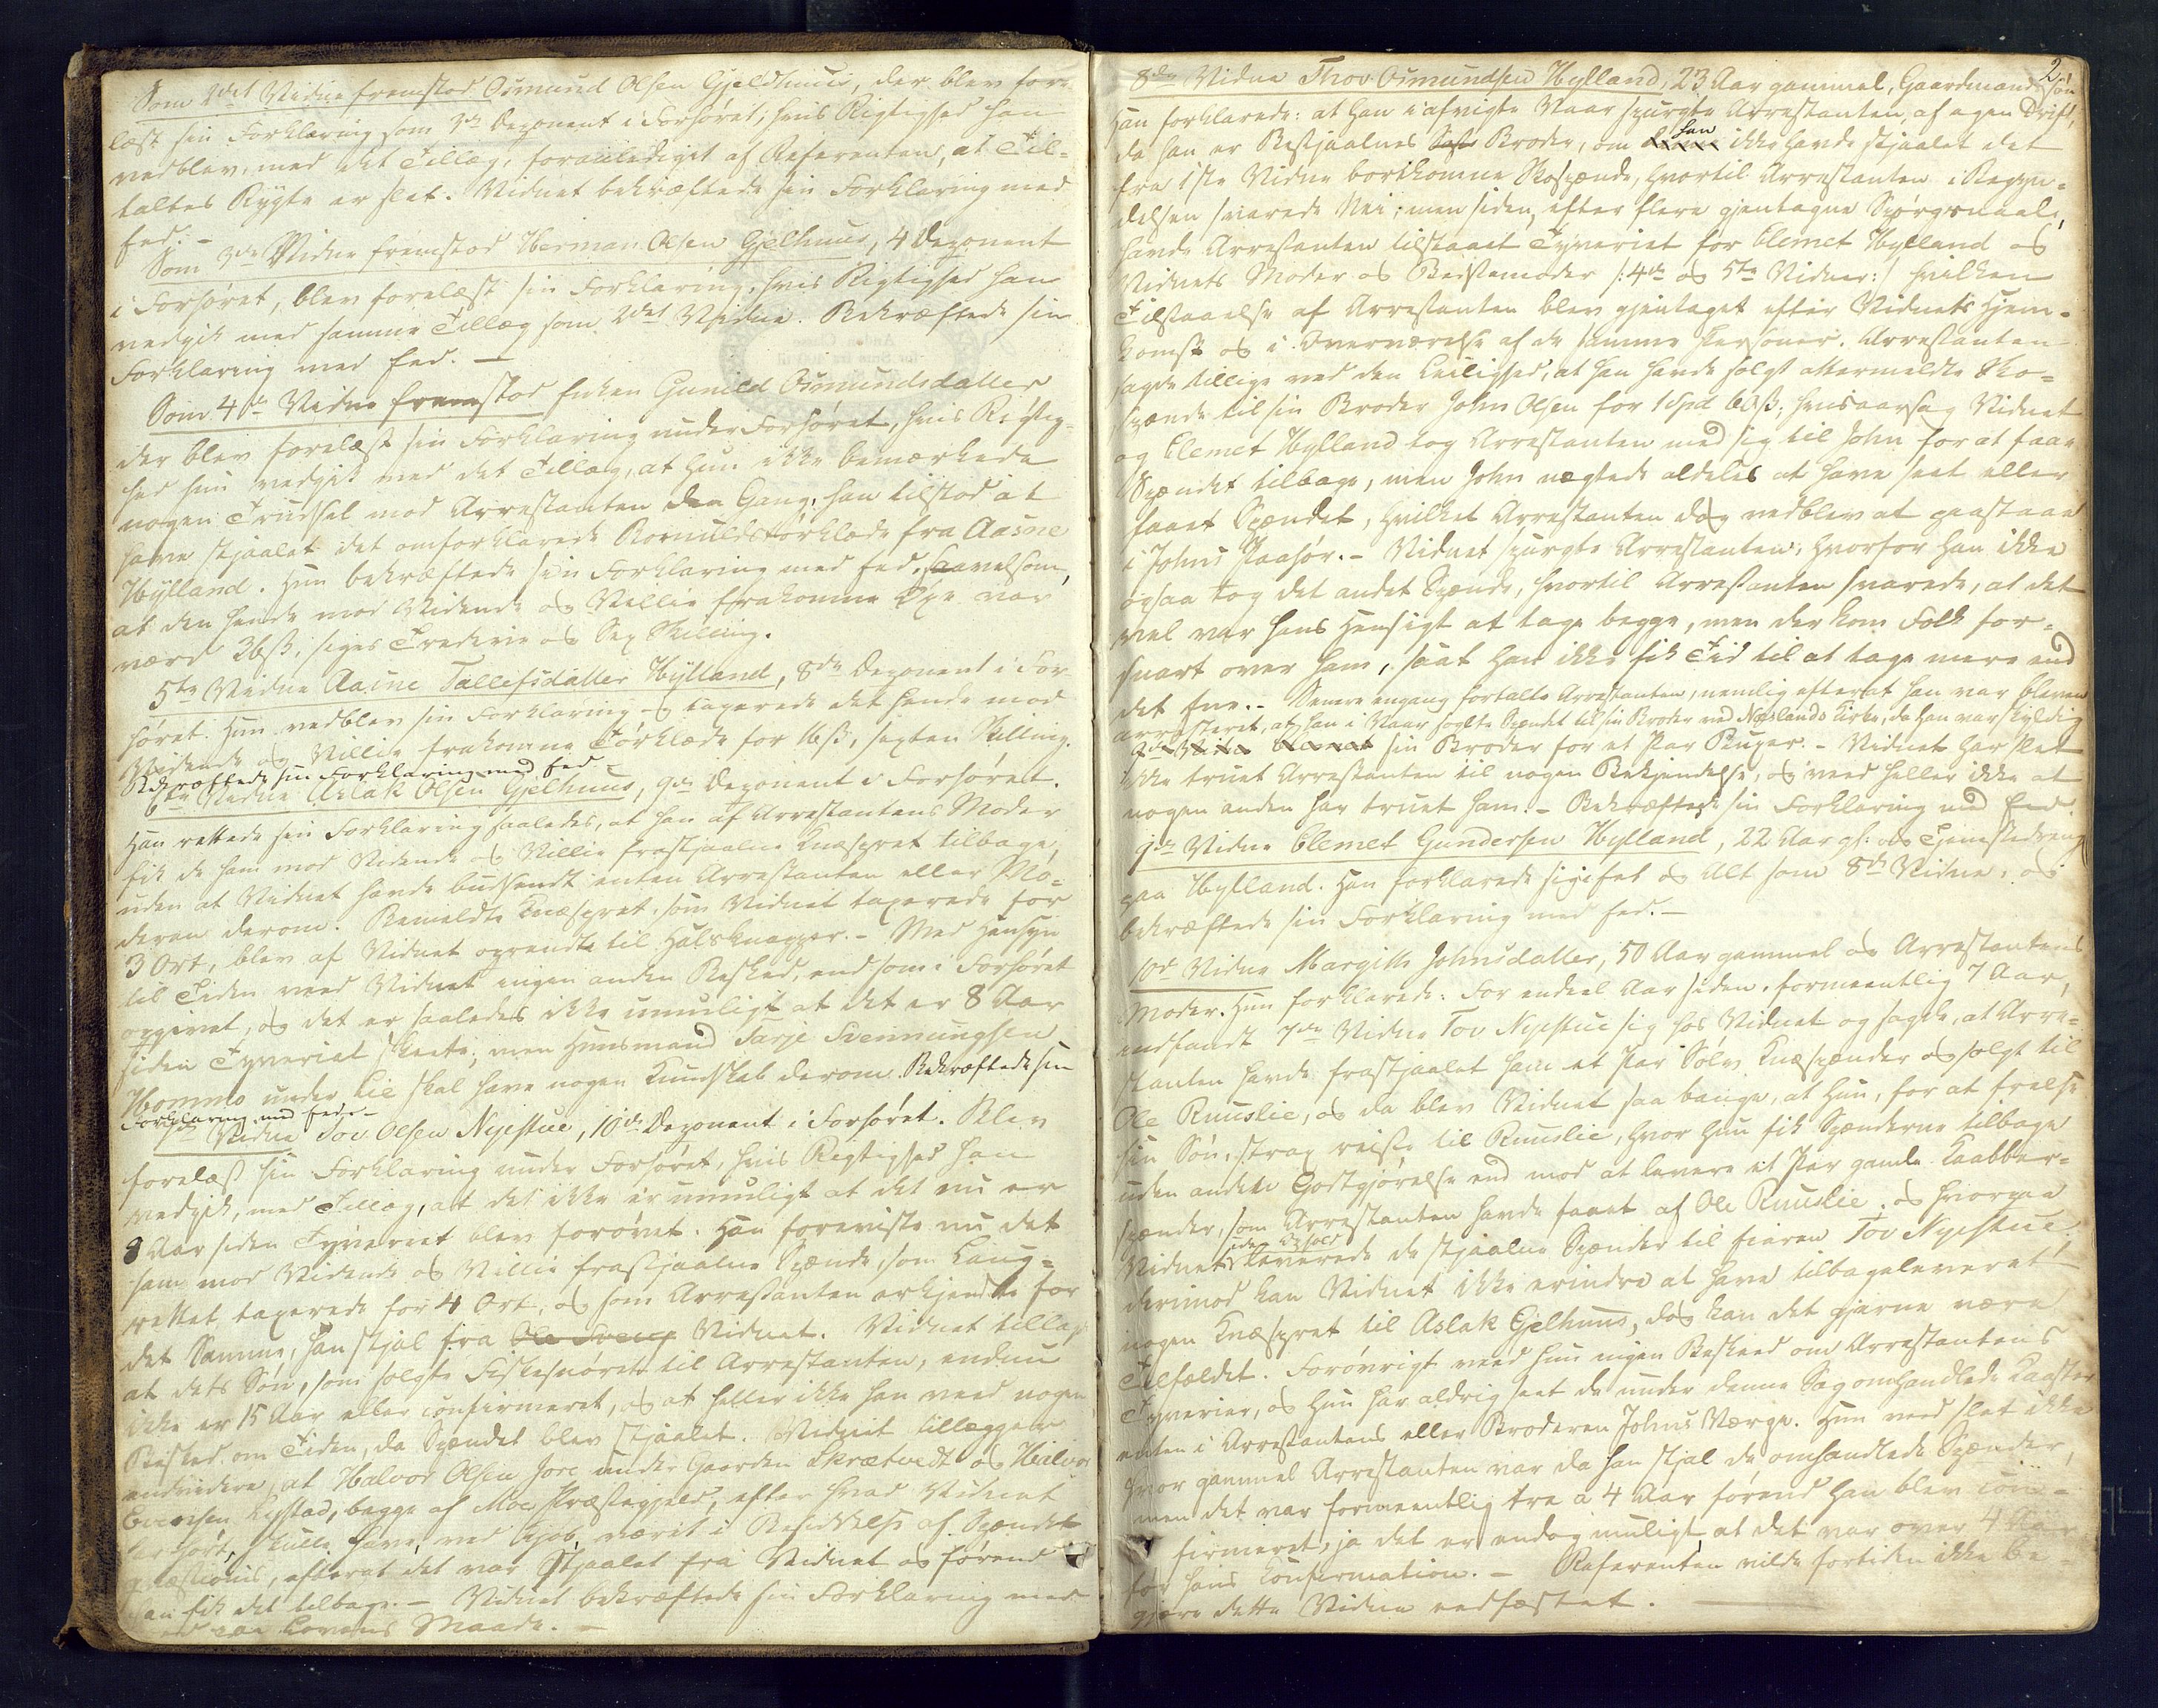 Som 2det Vidne fremstod Osmund Olsen Gjeldhuus, der blev fore-
læst sin Forklaring som 3die Deponent i Forhøret, hvis Rigtighed han
vedblev, med det Tillæg, foranlediget af Referenten, at Til-
taltes Rygte er slet. Vidnet bekræftede sin Forklaring med
Eed. -
Som 3die Vidne fremstod Herman Olsen Gjelhuus, 4 Deponent
i Forhøret, blev forelæst sin Forklaring, hvis Rigtighed han
vedgik med samme Tillæg som 2det Vidne. Bekræftede sin
Forklaring med Eed. -
Som 4de Vidne fremstod Enken Gunild Osmundsdatter
der blev forelæst sin Forklaring under Forhøret, hvis Rigtig-
hed hun vedgik med det Tillæg, at hun ikke bemærkede
nogen Trudsel mod Arrestanten den Gang, han tilstod at
have stjaalet det omforklarede Bomuldstørklæde fra Aasne
Hylland. Hun bekræftede sin Forklaring med Eed, saavelsom,
at den hende mod Vidende og Villie frakomne Øxe var
værd 36ß, siger Tredive og Sex Skilling.
5te Vidne Aasne Tallefsdatter Hylland, 8de Deponent i For-
høret. Hun vedblev sin Forklaring og taxerede det hende mod
Vidende og Villie frakomne Tørklæde for 16ß, sexten Skilling.
Bekræftede sin Forklaring med Eed -
6te Vidne Aslak Olsen Gjelhuus, 9de Deponent i Forhøret.
Han rettede sin Forklaring saaledes, at han af Arrestantens Moder
fik de ham mod Vidende og Villie frastjaalne Knæspret tilbage,
uden at Vidnet havde budsendt enten Arrestanten eller Mo-
deren derom. Bemeldte Knæspret, som Vidnet taxerede for
3 Ort, blev af Vidnet omvendte til Halsknapper. - Med Hensyn
til Tiden veed Vidnet ingen anden Besked, end som i Forhøret
opgivet, og det er saaledes ikke umuligt at det er 8 Aar
siden Tyveriet skeete; men Huusmand Tarje Svennungsen
Hommo under Lie skal have nogen Kundskab derom. Bekræftede sin
Forklaring med Eed. -
7de Vidne Tov Olsen Nyestue, 10de Deponent i Forhøret. Blev
forelæst sin Forklaring under Forhøret, hvis Rigtighed han
vedgik, med Tillæg, at det ikke er umuligt at det nu er
8 Aar siden Tyveriet blev forøvet. Han foreviste nu det
ham mod Vidende og Villie frastjaalne Spænde, som Laug-
rettet taxerede for 4 Ort, og som Arrestanten erkjendte for
det Samme, han stjal fra Vidnet. Vidnet tillagde
at dets Søn, som solgte Fiskesnøret til Arrestanten, endnu
ikke er 15 Aar eller confirmeret, og at heller ikke han veed nogen
Besked om Tiden, da Spændet blev stjaalet. Vidnet tillægger
endvidere, at Halvor Olsen Jore under Gaarden Skrætvedt og Halvor
Evensen Rystad, begge af Moe Præstegjeld, efter hvad Vidnet
har hørt, skulle have, ved Kjøb, værit i Besiddelse af Spændet
qvæstionis, efterat det var stjaalet fra Vidnet og førend
han fik det tilbage. - Vidnet bekræftede sin Forklaring med
Eed paa Lovens Maade. -
2.
8de Vidne Thov Osmundsen Hylland, 23 Aar gammel, Gaardmandssøn
Han forklarede: at han i afvigte Vaar spurgte Arrestanten, af egen Drift,
da han er Bestjaalnes Broder, om han ikke havde stjaalet det
fra 1ste Vidne bortkomne Skospænde, hvortil Arrestanten i Begyn-
delsen svarede Nei; men siden, efter flere gjentagne Spørgsmaale,
havde Arrestanten tilstaaet Tyveriet for Clemet Hylland og
Vidnets Moder og Bedstemoder /: 4de og 5te Vidner :/ hvilken
Tilstaaelse af Arrestanten blev gjentaget efter Vidnets Hjem-
komst og i Overværelse af de samme Personer. Arrestanten
sagde tillige ved den Leilighed, at han havde solgt ettermeldte Sko-
spænde til sin Broder John Olsen for 1 Spd 60ß; hvisaarsag Vidnet
og Clemet Hylland tog Arrestanten med sig til John for at faae
Spændet tilbage, men John nægtede aldeles at have seet eller
faaet Spændet, hvilket Arrestanten dog vedblev at paastaae
i Johns Paahør. - Vidnet spurgte Arrestanten, hvorfor han ikke
ogsaa tog det andet Spænde, hvortil Arrestanten svarede, at det
vel var hans Hensigt at tage begge, men der kom Folk for-
snart over ham, saa at han ikke fik Tid til at tage mere end
det Ene. - Senere engang fortalte Arrestanten, nemlig efterat han var bleven
arresteret, at han i Vaar solgte Spændet til sin Broder ved Næslands Kirke, da han var skyldig
sin Broder for et Par Buxer. - Vidnet har slet
ikke truet Arrestanten til nogen Bekjendelse, og veed heller ikke at
nogen anden har truet ham. - Bekræftede sin Forklaring med Eed.
9de Vidne Clemet Gundersen Hylland, 22 Aar gl. og Tjenestedreng
paa Hylland. Han forklarede sig i Eet og Alt som 8de Vidne, og
bekræftede sin Forklaring med Eed. -
10de Vidne Margith Johnsdatter, 50 Aar gammel og Arrestantens
Moder. Hun forklarede: For endeel Aar siden, formeentlig 7 Aar,
indfandt 7de Vidne Tov Nyestue sig hos Vidnet og sagde, at Arre-
stanten havde frastjaalet ham et Par Sølv Knæspænder og solgt til
Ole Ruuslie, og da blev Vidnet saa bange, at hun, for at frelse
sin Søn, strax reiste til Ruuslie, hvor hun fik Spænderne tilbage
uden anden Godtgjørelse end mod at levere et Par gamle Kaabber-
spænder, som Arrestanten havde faaet af Ole Ruuslie, og hvorpaa
Vidnet leverede de stjaalne Spænder til Eieren Tov Nyestue.
Derimod kan Vidnet ikke erindre at have tilbageleveret
nogen Knæspret til Aslak Gjelhuus, dog kan det gjerne være
Tilfældet. Forøvrigt veed hun ingen Beskeed om Arrestantens
Tyverier, og hun har aldrig seet de under denne Sag omhandlede Kaaster
enten i Arrestantens eller Broderen Johns Værge. Hun veed slet ikke
hvor gammel Arrestanten var da han stjal de omhandlede Spænder,
men det var formeentlig tre a 4 Aar førend han blev con-
firmeret, ja det er endog muligt, at det var over 4 Aar
før hans Confirmation. - Referenten vilde fortiden ikke be-
gjære dette Vidne eedfæstet.